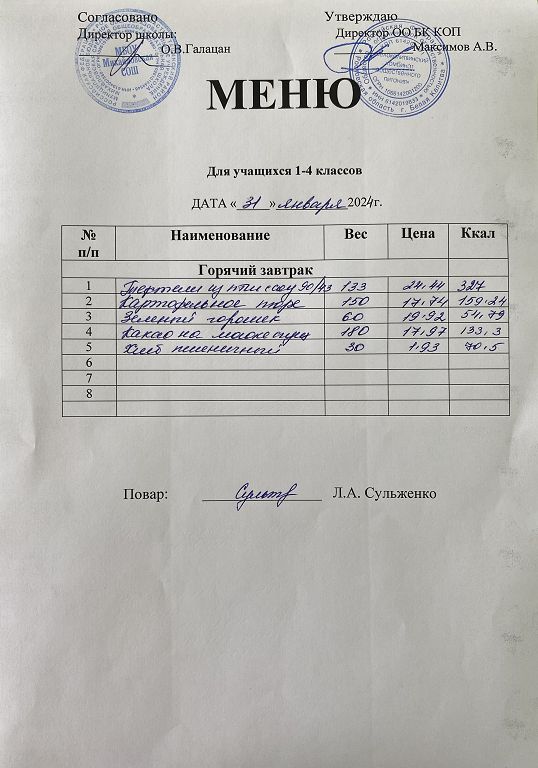 Согласовано Утверждаю
Директор школы: Директор ООБК КОП
О.В.Галацан Максимов А.В.
МЕНЮ
Для учащихся 1-4 классов
ДАТА « 31 » января 2024г.
№ п/п Наименование Вес Цена Ккал
Горячий завтрак
1 Тефтели из птицы с соус 90/43 133 24,44 327
2 Картофельное пюре 150 17,74 159,24
3 Зеленый горошек 60 19,92 54,79
4 Какао на молоке 180 17,97 133,3
5 Хлеб пшеничный 30 1,93 70,5
6
7
8
Повар: Л.А. Сульженко